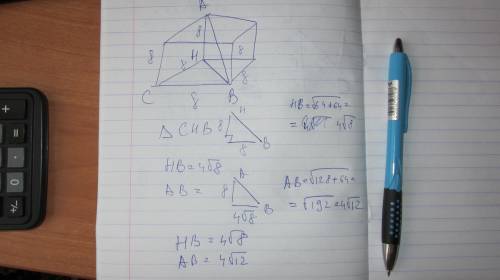 A
8
8
H
8
8
8
C
8
B
△ CHB
H
8
8
B
HB = √64+64 =
= 4√8
HB = 4√8
AB =
A
8
4√8
B
AB = √128+64 =
= √192 = 4√12
HB = 4√8
AB = 4√12